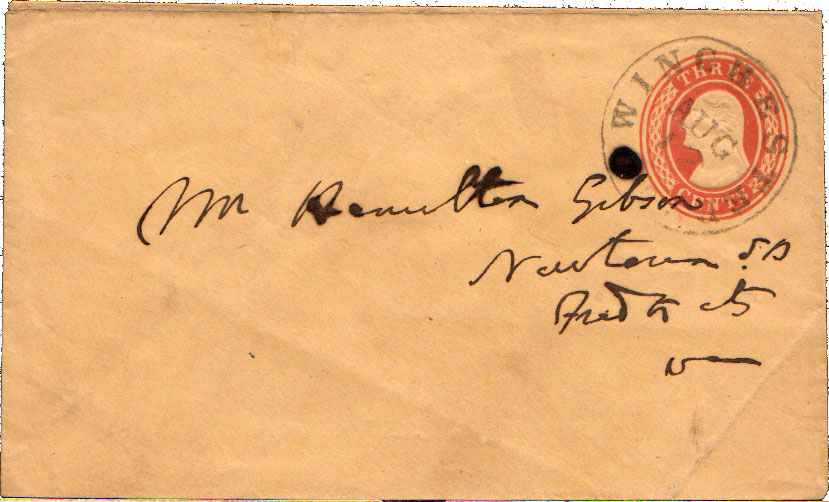 WINCHESTER
AUG
THREE
CENTS
Mr Hamilton Gibson
Newtown
Fredk